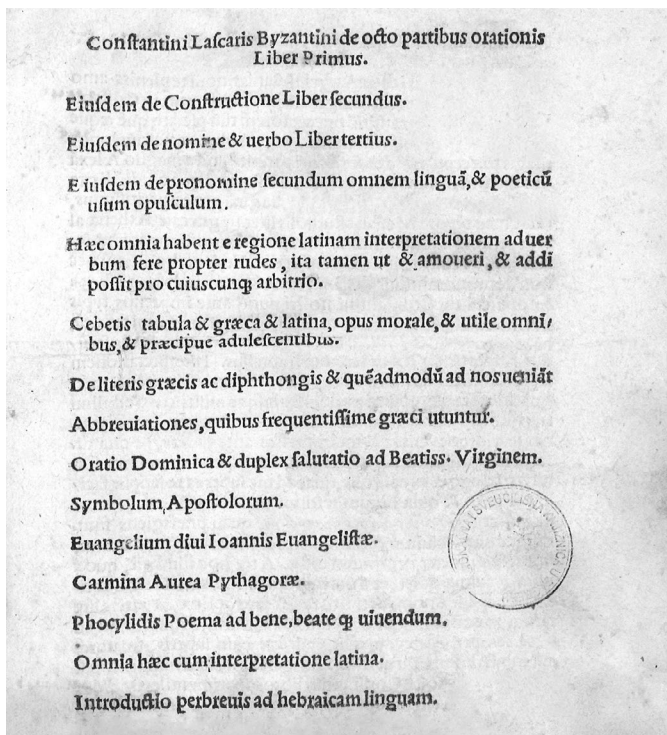 Conſtantini Laſcaris Byzantini de octo partibus orationis
Liber Primus.
Eiuſdem de Conſtructione Liber ſecundus.
Eiuſdem de nomine & uerbo Liber tertius.
Eiuſdem de pronomine ſecundum omnem linguã, & poeticũ
uſum opuſculum.
Hæc omnia habent e regione latinam interpretationem ad uer
bum fere propter rudes, ita tamen ut & amoueri, & addi
poſſit pro cuiuscunqꝫ arbitrio.
Cebetis tabula & græca & latina, opus morale, & utile omni/
bus, & præcipue aduleſcentibus.
De literis græcis ac diphthongis & quẽadmodũ ad nos ueniãt
Abbreuiationes, quibus frequentiſſime græci utuntur.
Oratio Dominica & duplex ſalutatio ad Beatiss. Virginem.
Symbolum Apoſtolorum.
Euangelium diui Ioannis Euangeliſtæ.
Carmina Aurea Pythagoræ.
Phocylidis Poema ad bene, beate qꝫ uiuendum.
Omnia hæc cum interpretatione latina.
Introductio perbreuis ad hebraicam linguam.